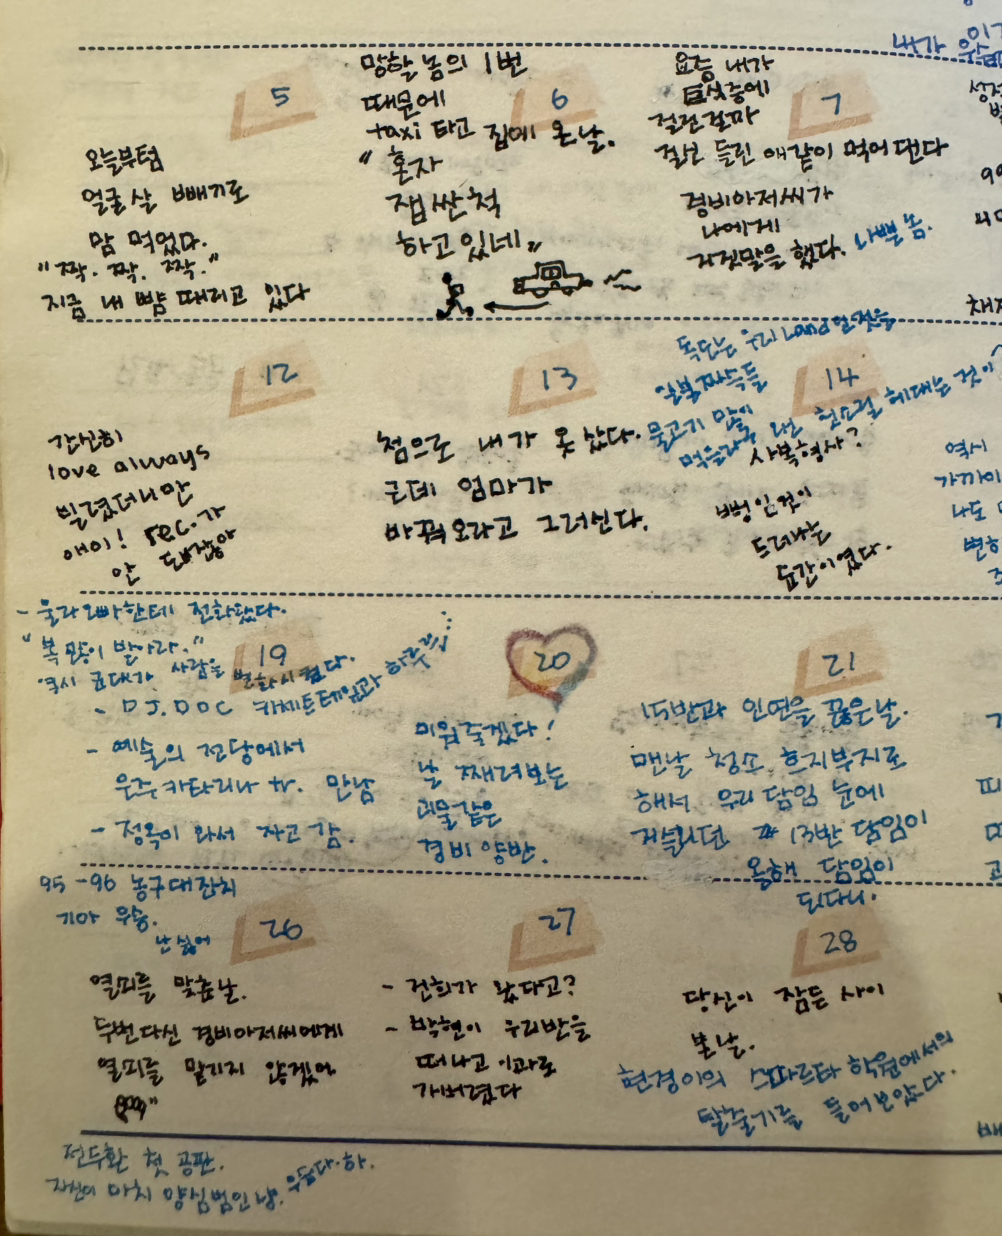 내가
5
오늘부텀
얼굴살 빼기로
맘 먹었다.
"짝. 짝. 짝."
지금 내 뺨 때리고 있다
망할놈의 1번
때문에
6
taxi 타고 집에 온날.
"혼자
잽싼척
하고있네"
요즘 내가
걸신 들린 애같이 먹어댄다
7
경비아저씨가
나에게
거짓말을 했다. 나쁜 놈.
12
간신히
love always
빌렸더니만
에이! rec.가
안 돼잖아
13
첨으로 내가 옷 샀다.
근데 엄마가
바꿔오라고 그러신다.
독도는 우리 land
14
물고기 많이
사복형사?
뻥임것이
드러나는
순간이였다.
역시
나도
- 울라오빠한테 전화왔다.
"복 많이 받아라."
역시 군대가 사람을 변화시켰다.
19
- DJ.DOC 카세트테잎과 하루
- 예술의 전당에서
우주카타리나 tr. 만남
- 정옥이 와서 자고감.
20
미워죽겠다!
날 째려보는
괴물같은
경비 양반.
21
15반과 인연을 끊은날.
맨날 청소 흐지부지로
해서 우리담임 눈에
거슬리던 #13반 담임이
올해 담임이
되다니.
95-96 농구대잔치
기아 우승.
난 싫어
26
열쇠를 맞춘날.
두번다신 경비아저씨에게
열쇠를 맡기지 않겠어
27
- 건희가 왔다고?
- 박현이 우리반을
떠나고 이과로
가버렸다
28
당신이 잠든 사이
본날.
현경이의 스파르타 학원에서의
탈출기를 들어보았다.
전두환 첫 공판.
자신이 마치 양심범인냥. 우습다. 하.